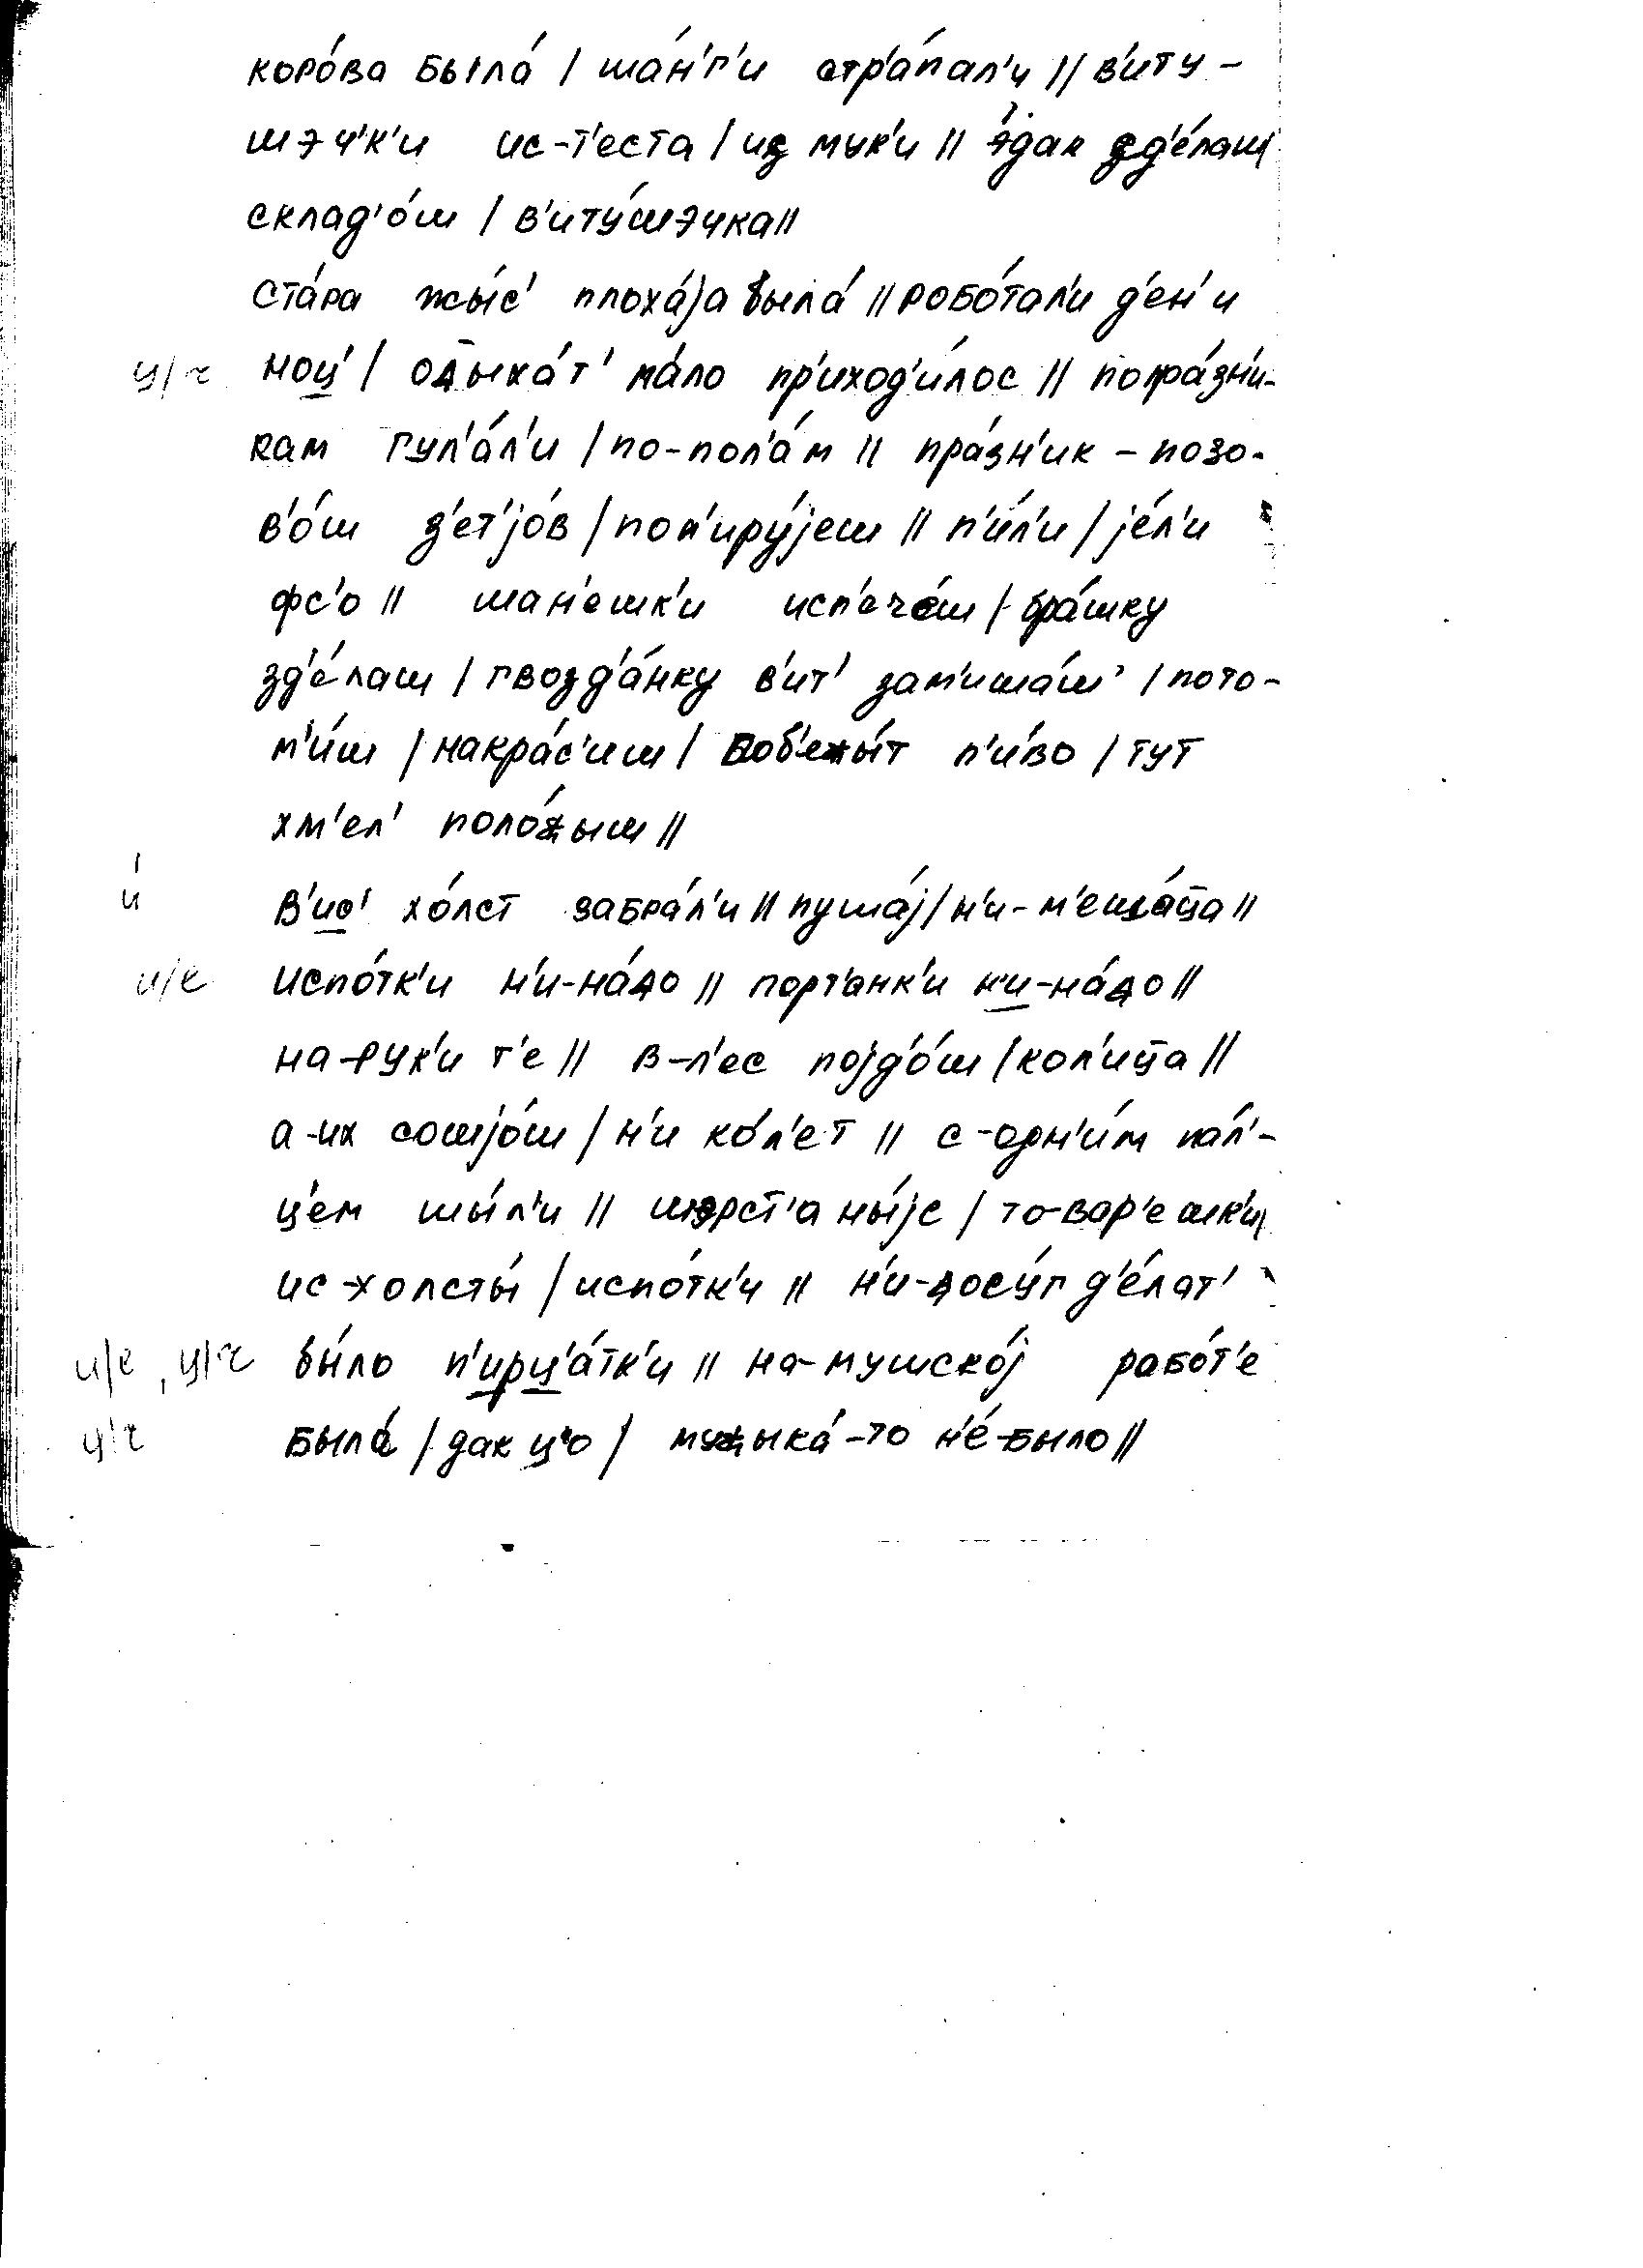 коро́ва была́ / ша́н'г'и стр'а́пал'и // в'иту-
шэч'к'и ис-т'еста / из мук'и // э́дак зд'е́лаш /
склад'о́ш / в'иту́шэчка //
ста́ра жы́с' плоха́jа была́ // робо́тал'и д'ен' и
ц/ч ноц' / одыха́т' ма́ло пр'иход'и́лос // по пра́зн'и-
кам гул'а́л'и / по-пол'а́м // пра́зн'ик - позо-
в'о́ш з'ет'jо́в / поп'иру́jеш // п'и́л'и / jе́л'и
фс'о // шан'ешк'и исп'еч́еш / бра́шку
зд'е́лаш / гвозд'а́нку в'ит' зам'иша́ш' / пото-
м'и́ш / накра́с'иш / побежы́т п'и́во / тут
хм'ел' поло́жыш //
и́ в'ис' хо́лст забра́л'и // пуша́j / н'и-м'еша́ца //
и/е испо́тк'и н'и-на́до // порт'анк'и н'и-на́до //
на-рук'и т'е // в-л'ес поjд'о́ш / кол'ица //
а-их сошjо́ш / н'и ко́л'ет // с-одн'и́м па́л'-
ц'ем шы́л'и // шэрст'аны́jе / то-вар'ешк'и /
ис-холсты́ / испо́тк'и // н'и-досу́г д'е́лат'
и/е, ц/ч бы́ло п'ирц'а́тк'и // на-мушско́j рабо́т'е
ц/ч была́ / дак ц'о / мужыка́-то н'е́-было //